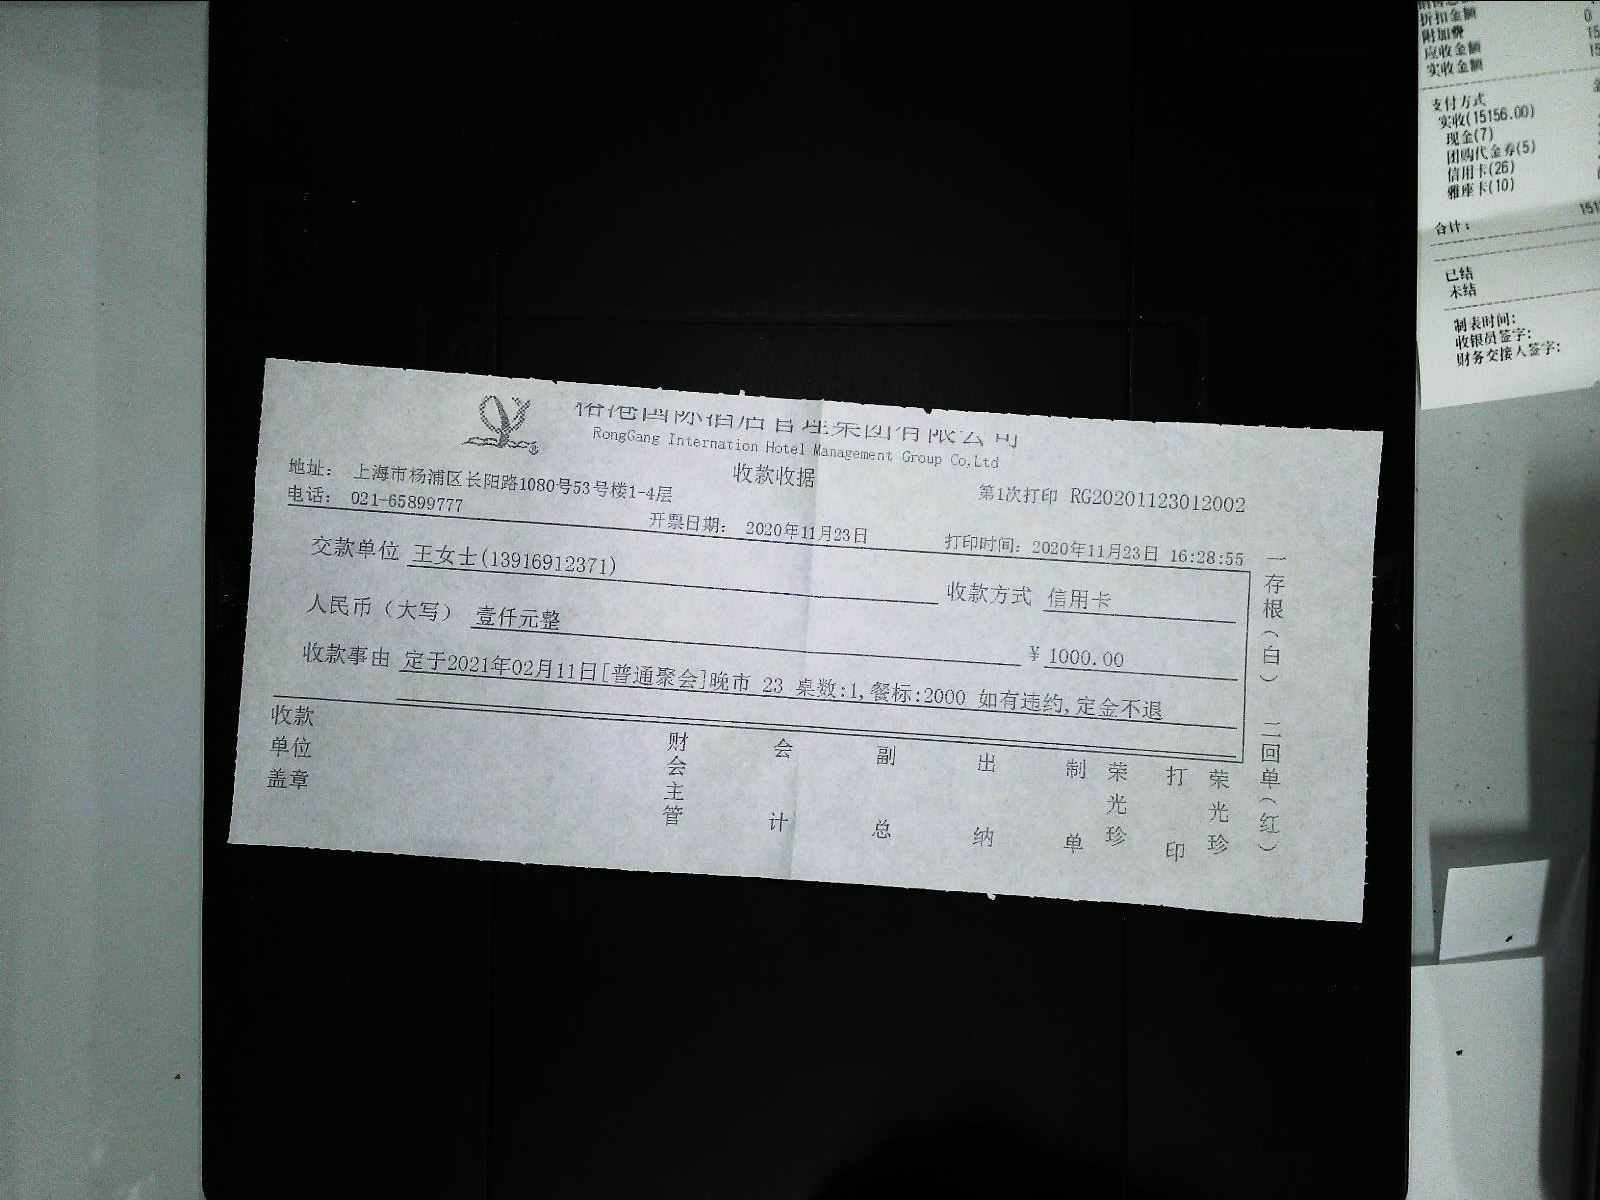 国际酒店管理集团有限公司
RongGang Internation Hotel Management Group Co,Ltd
收款收据
地址： 上海市杨浦区长阳路1080号53号楼1-4层
第1次打印 RG20201123012002
电话： 021-65899777
开票日期： 2020年11月23日
打印时间: 2020年11月23日 16:28:55
交款单位 王女士(13916912371)
收款方式 信用卡
人民币（大写） 壹仟元整
¥ 1000.00
收款事由 定于2021年02月11日[普通聚会]晚市 23 桌数:1,餐标:2000 如有违约,定金不退
收款单位盖章
财会主管
会计
副总
出纳
制单
荣光珍
打印
荣光珍
一存根（白） 二回单（红）
折扣金额 0
附加费
应收金额
实收金额
支付方式
实收(15156.00)
现金(7)
团购代金券(5)
信用卡(26)
雅座卡(10)
合计:
已结
未结
制表时间:
收银员签字:
财务交接人签字: